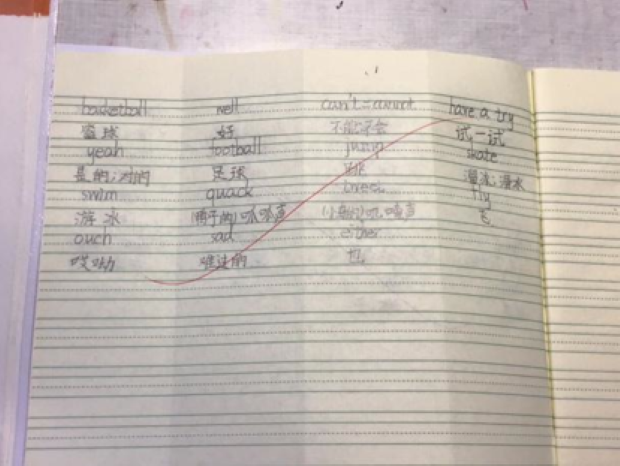 basketball well can't=cannot have a try
篮球 好 不能;不会 试一试
yeah football jump skate
是的;对的 足球 跳 滑冰
swim quack tweet fly
游冰 (鸭子的)呱呱声 飞
ouch sad either
哎呦 难过的 也